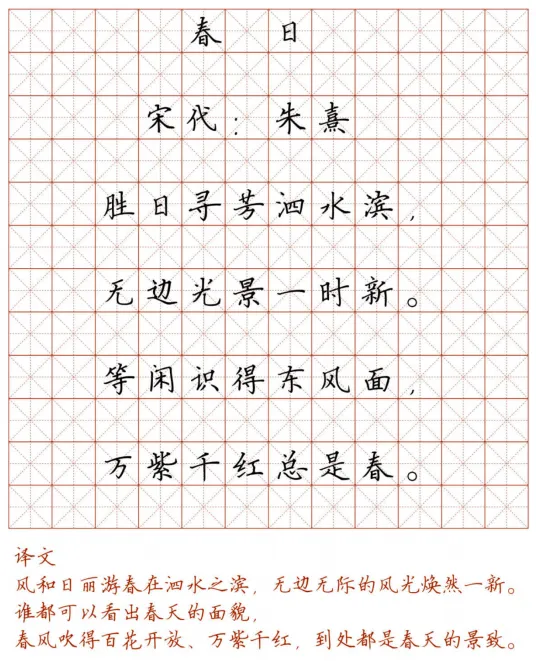 春日
宋代：朱熹
胜日寻芳泗水滨，
无边光景一时新。
等闲识得东风面，
万紫千红总是春。
译文
风和日丽游春在泗水之滨，无边无际的风光焕然一新。
谁都可以看出春天的面貌，
春风吹得百花开放、万紫千红，到处都是春天的景致。